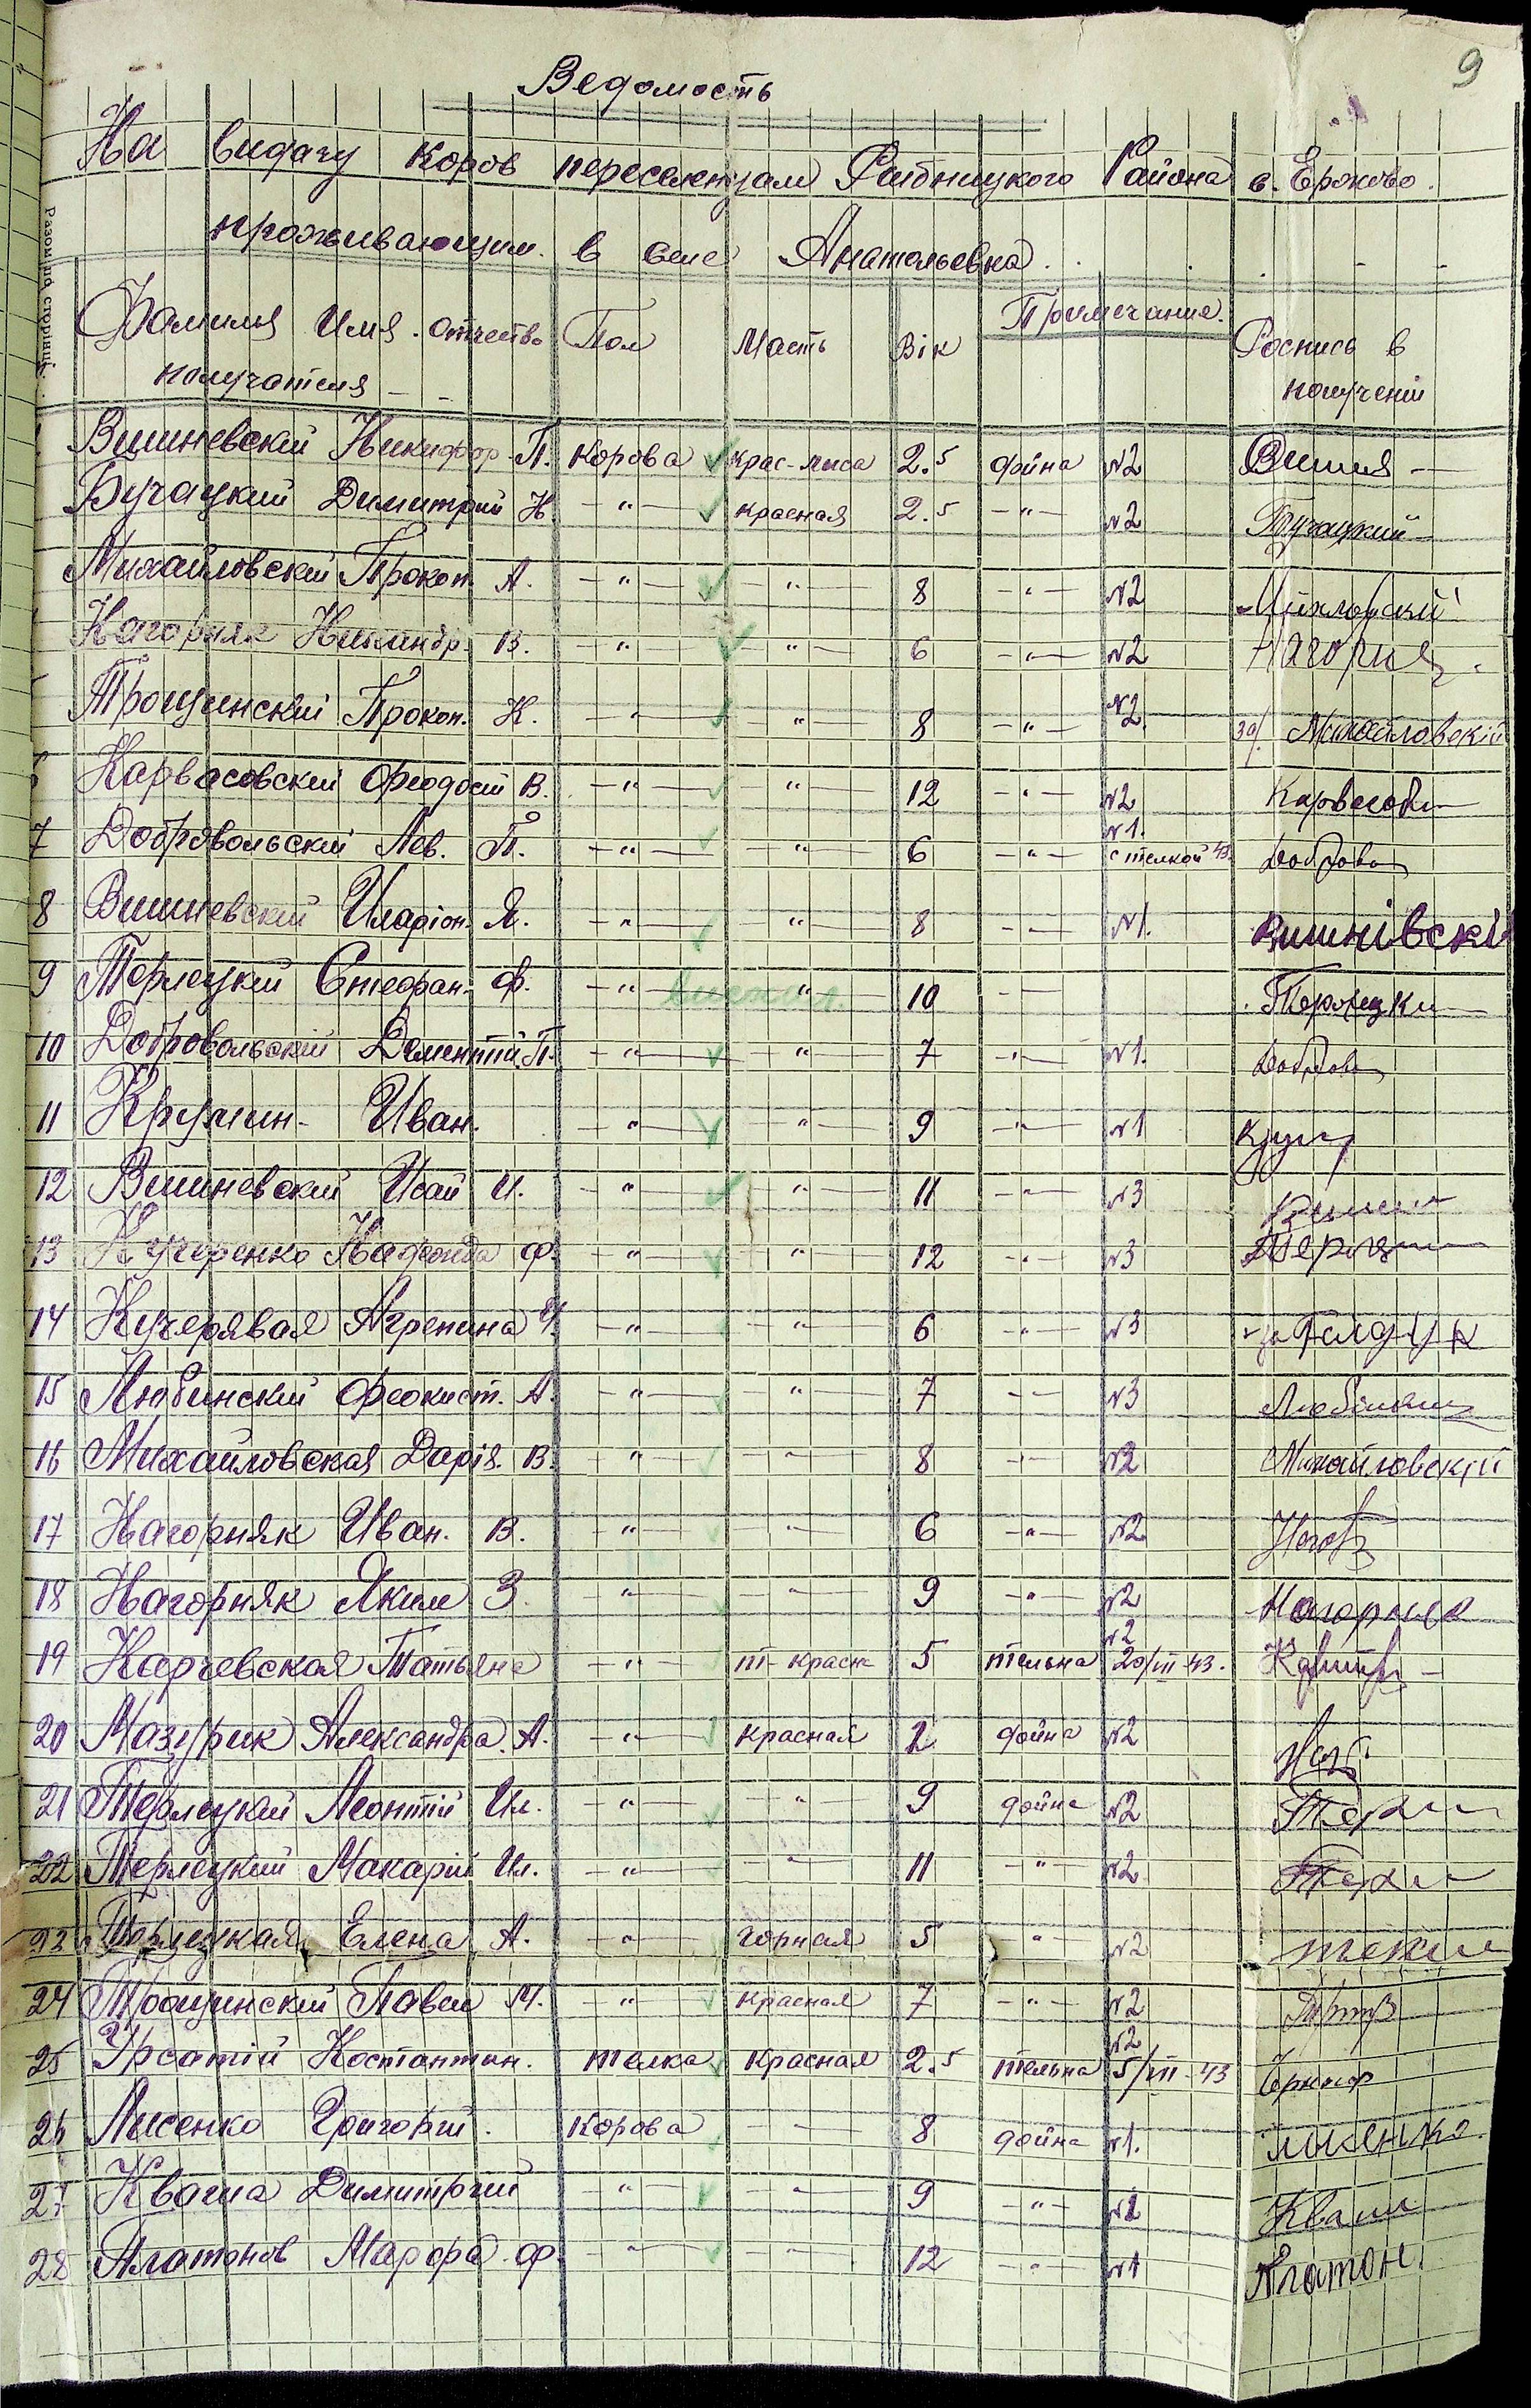 9
Ведомость
На видачу коров переселенцам Рибницкого Района с. Ержово.
проживающим в селе Анатольевка
Разом по сторінці
Фамилия Имя Отчество получателя
Пол
Масть
Вік
Примечание.
Роспись в получениі
Вишневский Никифор П. корова крас-лиса 2.5 дойна №2
Бучацкий Димитрий Н -"- красная 2.5 -"- №2 Бучацкий
Михайловский Прокоп. А. -"- -"- 8 -"- №2
Нагорняк Никандр. В. -"- -"- 6 -"- №2 Нагорня
Трощинский Прокоп. К. -"- -"- 8 -"- №2. за/ Михайловский
6 Карвасовский Феодосий В. -"- -"- 12 -"- №2
7 Добровольский Лев. П. -"- -"- 6 -"- №1. с телкой 43. Добров
8 Вишневский Иларіон. Я. -"- -"- 8 -"- №1. Вишнівскі
9 Терлецкий Стефан. Ф. -"- виехал. -"- 10 -"- Терлецки
10 Добровольскій Дементій. П. -"- -"- 7 -"- №1. Добров
11 Крумин- Иван. -"- -"- 9 -"- №1
12 Вишневский Исай И. -"- -"- 11 -"- №3
13 Кучеренко Надежда Ф. -"- -"- 12 -"- №3
14 Кучерявая Агрепина И. -"- -"- 6 -"- №3
15 Любинский Феокист. А. -"- -"- 7 -"- №3
16 Михайловская Дарія. В. -"- -"- 8 -"- №2 Михайловский
17 Нагорняк Иван. В. -"- -"- 6 -"- №2
18 Нагорняк Яким З. -"- -"- 9 -"- №2 Нагорняк
19 Карчевская Татьяна -"- т-красн 5 тельна №2 20/III-43.
20 Мазурик Александра. А. -"- красная 2 дойна №2
21 Терлецкий Леонтій Ил. -"- -"- 9 дойна №2
22 Терлецкий Макарій Ил. -"- -"- 11 -"- №2
23 Терлецкая Елена А. -"- чорная 5 -"- №2
24 Трощинский Павел М. -"- красная 7 -"- №2
25 Урсатій Костантин. телка красная 2.5 тельна №2 5/III-43
26 Лисенко Григорій. корова -"- 8 дойна №1. Лисенко.
27 Кваша Димитрий -"- -"- 9 -"- Кваш
28 Платонов Марфа Ф. -"- -"- 12 -"- №1 Платон.